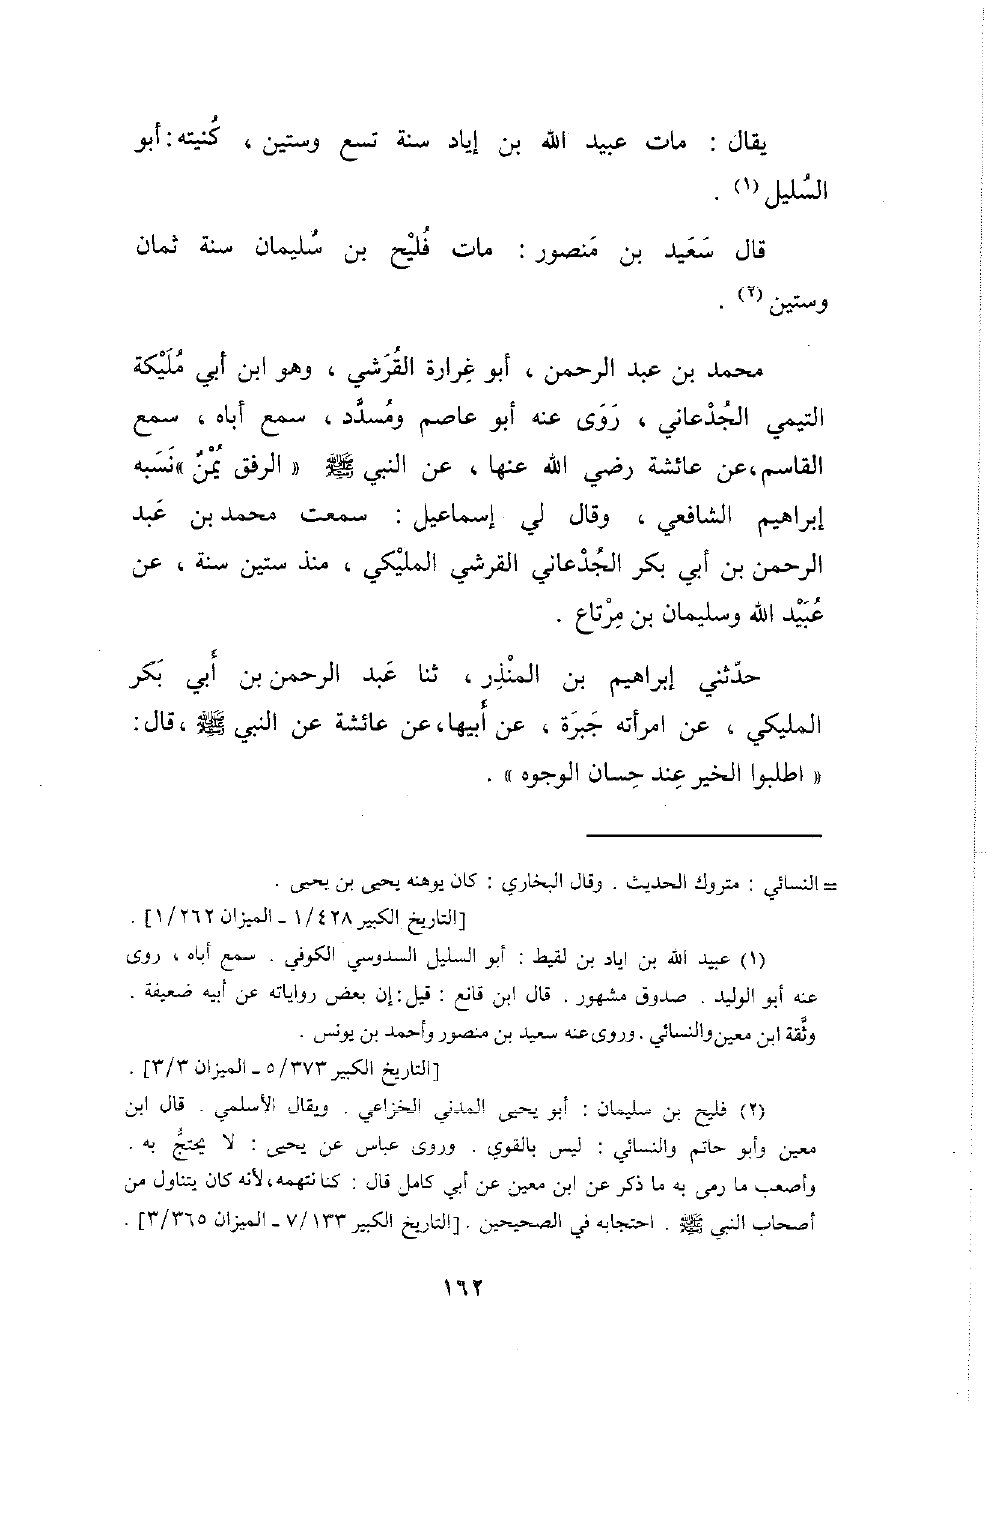 يقال : مات عبيد الله بن إياد سنة تسع وستين ، كُنيته : أبو
السُليل (١) .
قال سَعَيد بن مَنصور : مات فُليْح بن سُليمان سنة ثمان
وستين (٢) .
محمد بن عبد الرحمن ، أبو غِرارة القُرَشي ، وهو ابن أبي مُلَيْكة
التيمي الجُدْعاني ، رَوَى عنه أبو عاصم ومُسدَّد ، سمع أباه ، سمع
القاسم ، عن عائشة رضي الله عنها ، عن النبي ﷺ « الرفق يُمْنٌ » نَسَبه
إبراهيم الشافعي ، وقال لي إسماعيل : سمعت محمد بن عَبد
الرحمن بن أبي بكر الجُدْعاني القرشي المليْكي ، منذ ستين سنة ، عن
عُبَيْد الله وسليمان بن مِرْتاع .
حدّثني إبراهيم بن المنْذِر ، ثنا عَبد الرحمن بن أَبي بَكر
المليكي ، عن امرأته جَبرَة ، عن أَبيها ، عن عائشة عن النبي ﷺ ، قال :
« اطلبوا الخير عِند حِسان الوجوه » .
= النسائي : متروك الحديث . وقال البخاري : كان يوهنه يحيى بن يحيى .
[التاريخ الكبير ١/٤٢٨ ـ الميزان ١/٢٦٢] .
(١) عبيد الله بن اياد بن لقيط : أبو السليل السدوسي الكوفي . سمع أباه ، روى
عنه أبو الوليد . صدوق مشهور . قال ابن قانع : قيل : إن بعض رواياته عن أبيه ضعيفة .
وثَّقة ابن معين والنسائي . وروى عنه سعيد بن منصور وأحمد بن يونس .
[التاريخ الكبير ٥/٣٧٣ ـ الميزان ٣/٣] .
(٢) فليح بن سليمان : أبو يحيى المدني الخزاعي . ويقال الأسلمي . قال ابن
معين وأبو حاتم والنسائي : ليس بالقوي . وروى عباس عن يحيى : لا يحتجُّ به .
وأصعب ما رمى به ما ذكر عن ابن معين عن أبي كامل قال : كنا نتهمه ، لأنه كان يتناول من
أصحاب النبي ﷺ . احتجابه في الصحيحين . [التاريخ الكبير ٧/١٣٣ ـ الميزان ٣/٣٦٥] .
١٦٢